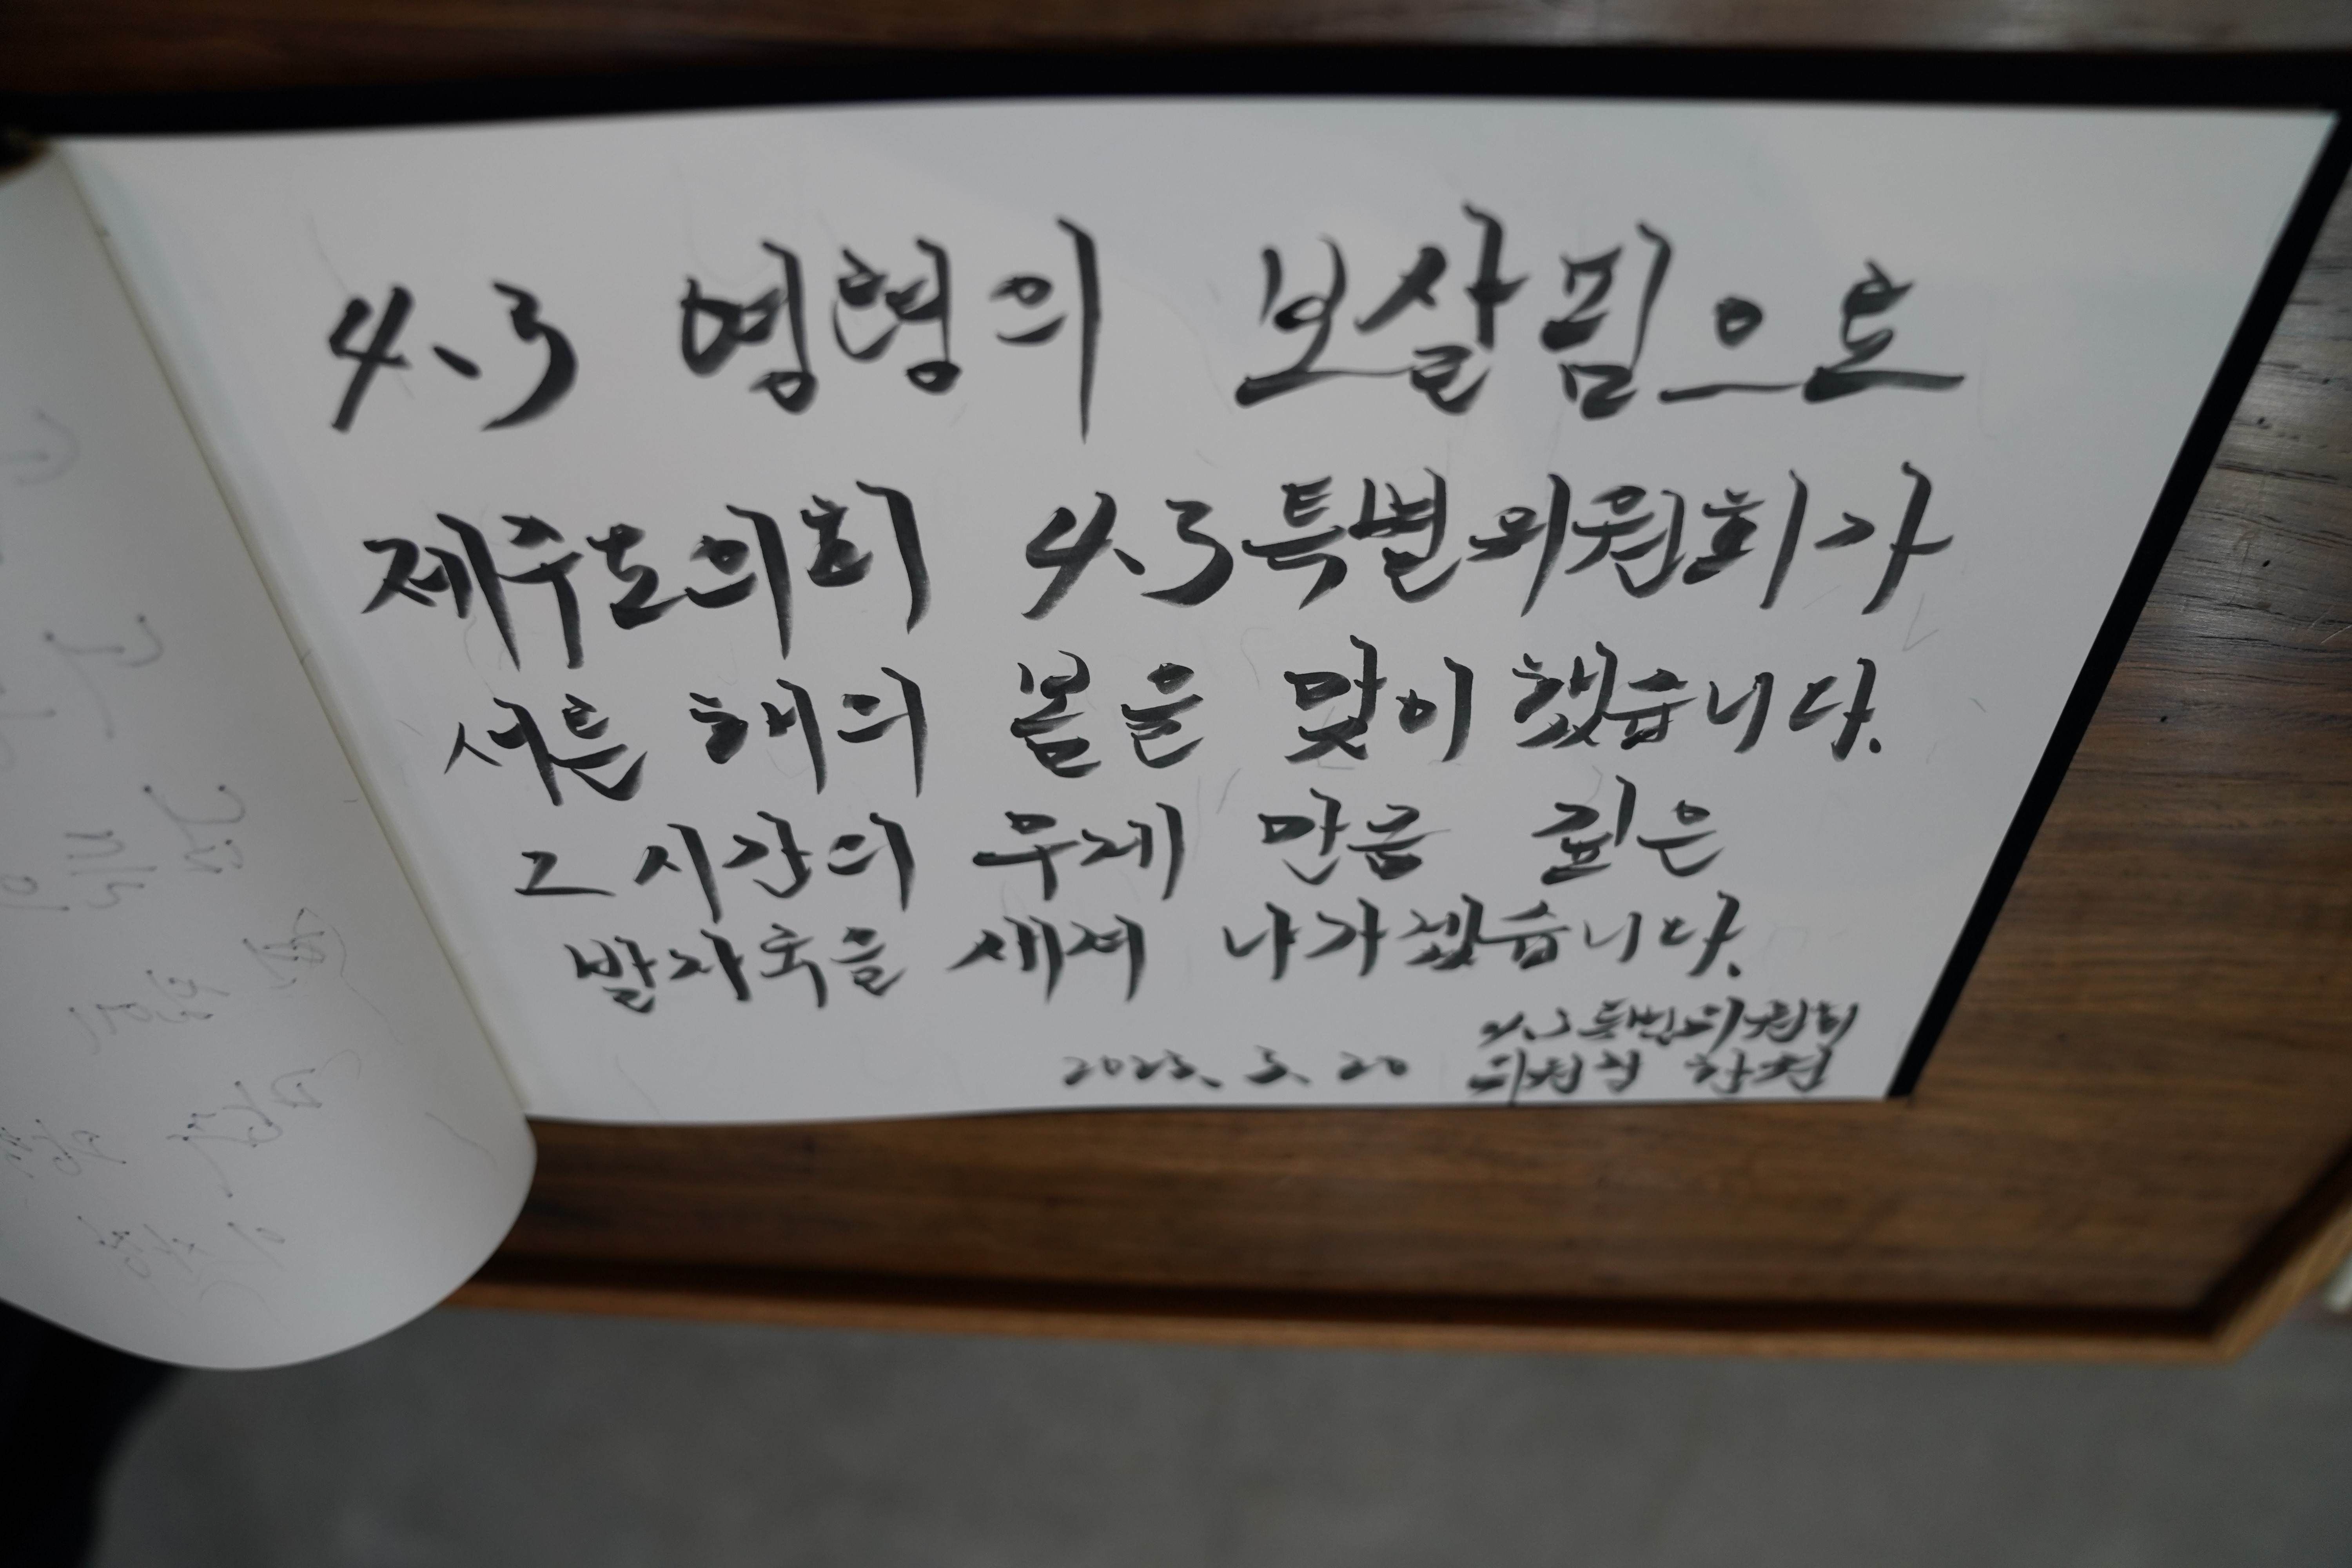 4.3 영령의 보살핌으로
제주도의회 4.3특별위원회가
서른 해의 봄을 맞이 했습니다.
그 시간의 무게 만큼 깊은
발자국을 새겨 나가겠습니다.
4.3 특별위원회
2023. 3. 20 위원장 한권